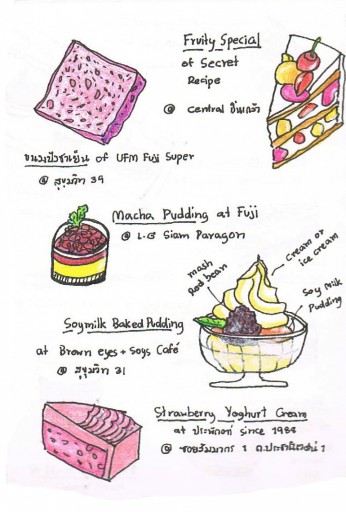 Fruity Special
of Secret
Recipe
@ Central ปิ่นเกล้า
ขนมปังชาเย็น of UFM Fuji Super
@ สุขุมวิท 39
Macha Pudding at Fuji
@ L.G Siam Paragon
mash
Red bean
Cream or
ice cream
Soy milk
Pudding
Soymilk Baked Pudding
at Brown eyes + Soys Café
@ สุขุมวิท 31
Strawberry Yoghurt Cream
at since 1988
@ ซอย 1